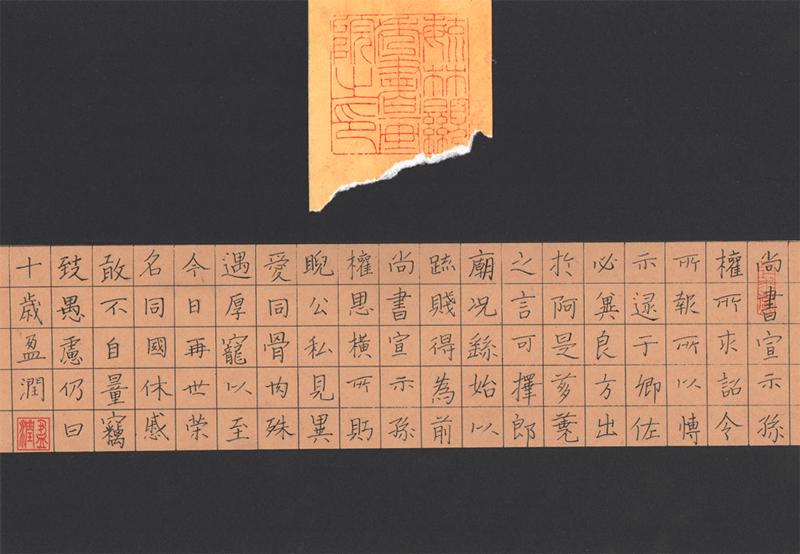 尚書宣示孫
權所求詔令
所報所以愽
示逮于卿佐
必冀良方出
於阿是芻蕘
之言可擇郎
廟況繇始以
疏賤得為前
尚書宣示孫
權思橫所眄
睨公私見異
愛同骨肉殊
遇厚寵以至
今日再世榮
名同國休慼
敢不自量竊
致愚慮仍日
十歲盈潤